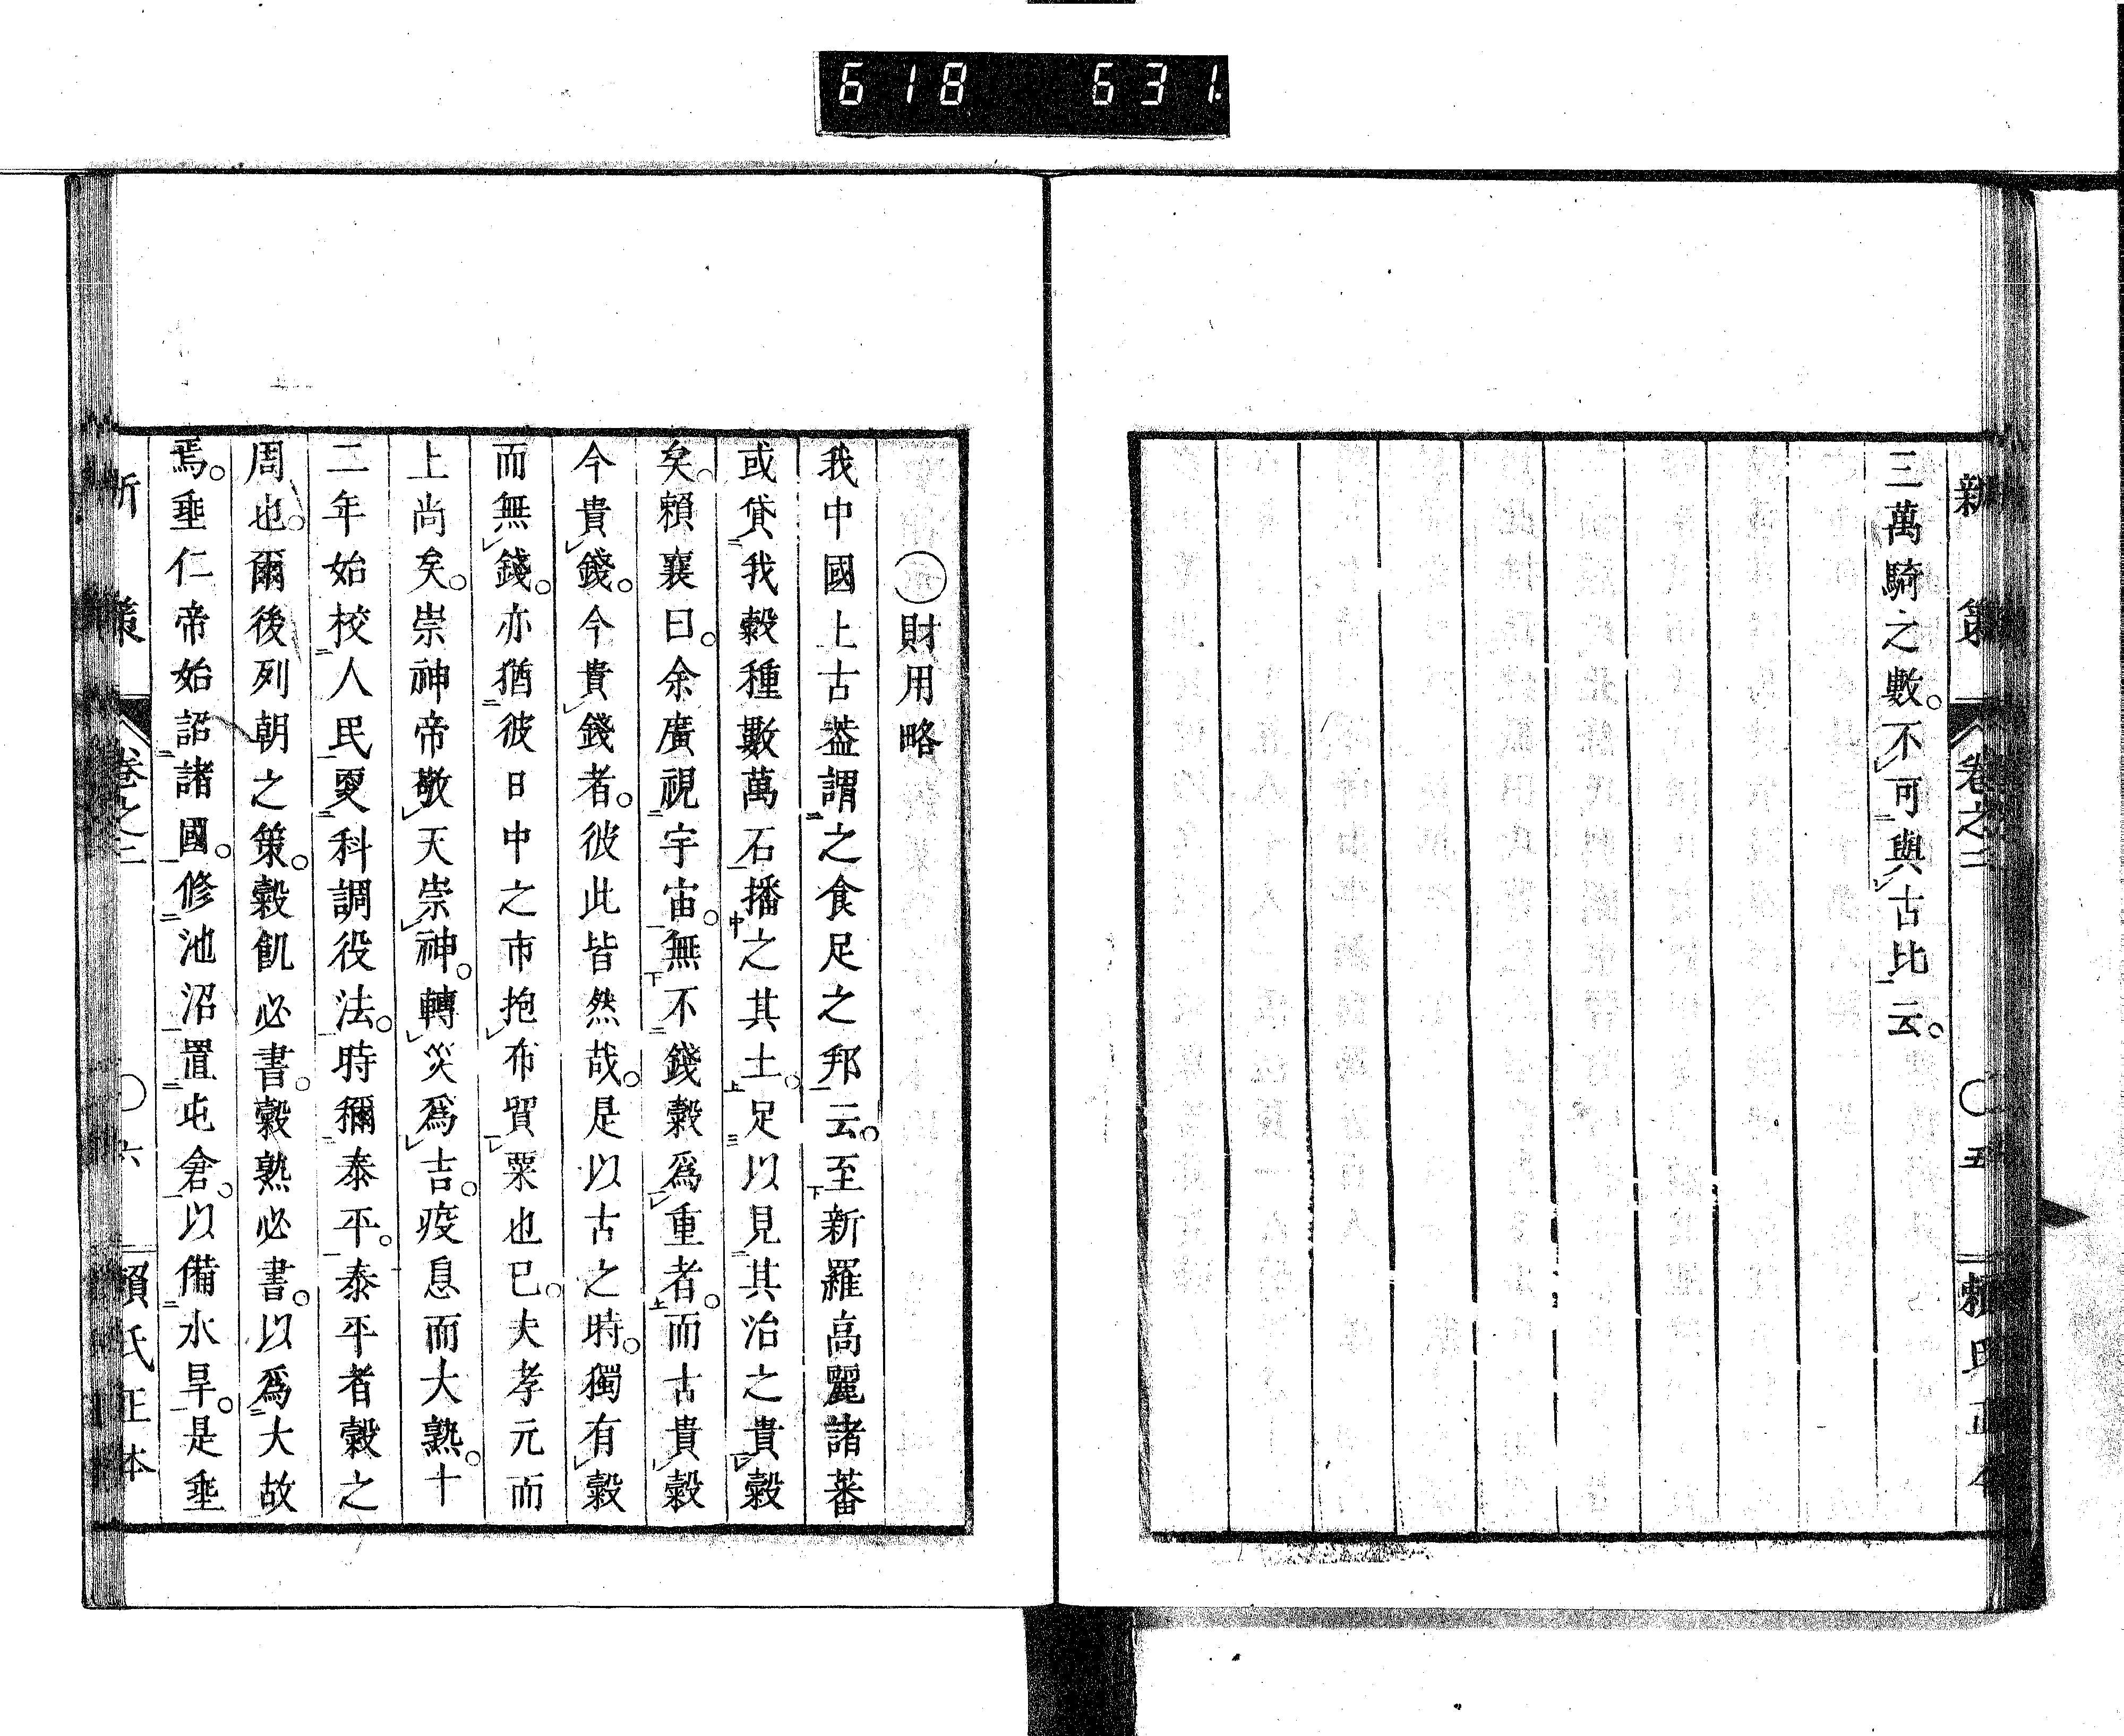 618 631
新策 卷之二 〇五 賴氏正本
三萬騎之數。不可與古比云。
〇財用略
我中國上古蓋謂之食足之邦云。至新羅高麗諸蕃
或貸我穀種數萬石播之其土。足以見其治之貴穀
矣。賴襄曰。余廣視宇宙。無不錢穀爲重者。而古貴穀
今貴錢。今貴錢者。彼此皆然哉。是以古之時。獨有穀
而無錢。亦猶彼日中之市抱布貿粟也已。夫孝元而
上尚矣。崇神帝敬天崇神。轉災爲吉。疫息而大熟。十
二年始校人民更科調役法。時稱泰平。泰平者穀之
周也。爾後列朝之策。穀飢必書。穀熟必書。以爲大故
焉。垂仁帝始詔諸國。修池沼置屯倉。以備水旱。是垂
新策 卷之二 〇六 賴氏正本